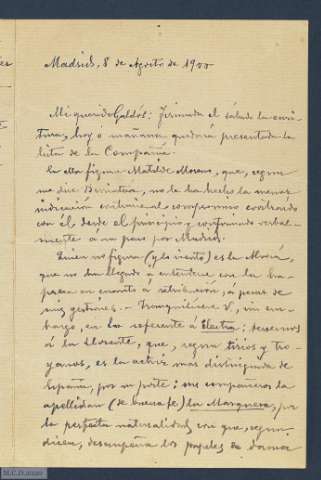 Madrid, 8 de Agosto de 1900
Mi querido Galdós: Firmada el sábado la escri-
tura, hoy ó mañana quedará presentada la
lista de la Compañía.
En ella figura Matilde Moreno, que, según
me dice Berriatúa, no le ha hecho la menor
indicación contraria al compromiso contraído
con él, desde el principio y confirmado verbal-
mente á su paso por Madrid.
Quien no figura (y lo siento) es la
que no ha llegado á entenderse con la Em-
presa en cuanto á retribución, á pesar de
mis gestiones. — Tranquilícese V., sin em-
bargo, en lo referente á Electra: tenemos
á la Llorente, que, según tirios y tro-
yanos, es la actriz más distinguida de
España, por su porte; sus compañeros la
apellidan (de buena fe) la Marquesa, por
la perfecta naturalidad con que, según
dicen, desempeña los papeles de dama